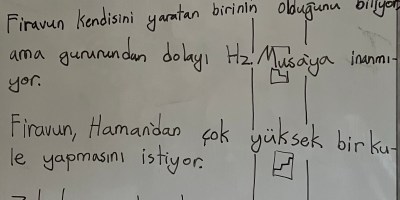 Firavun kendisini yaratan birinin olduğunu biliyor
ama gururundan dolayı Hz. Musa'ya inanmı-
yor.
Firavun, Haman'dan çok yüksek bir ku-
le yapmasını istiyor.